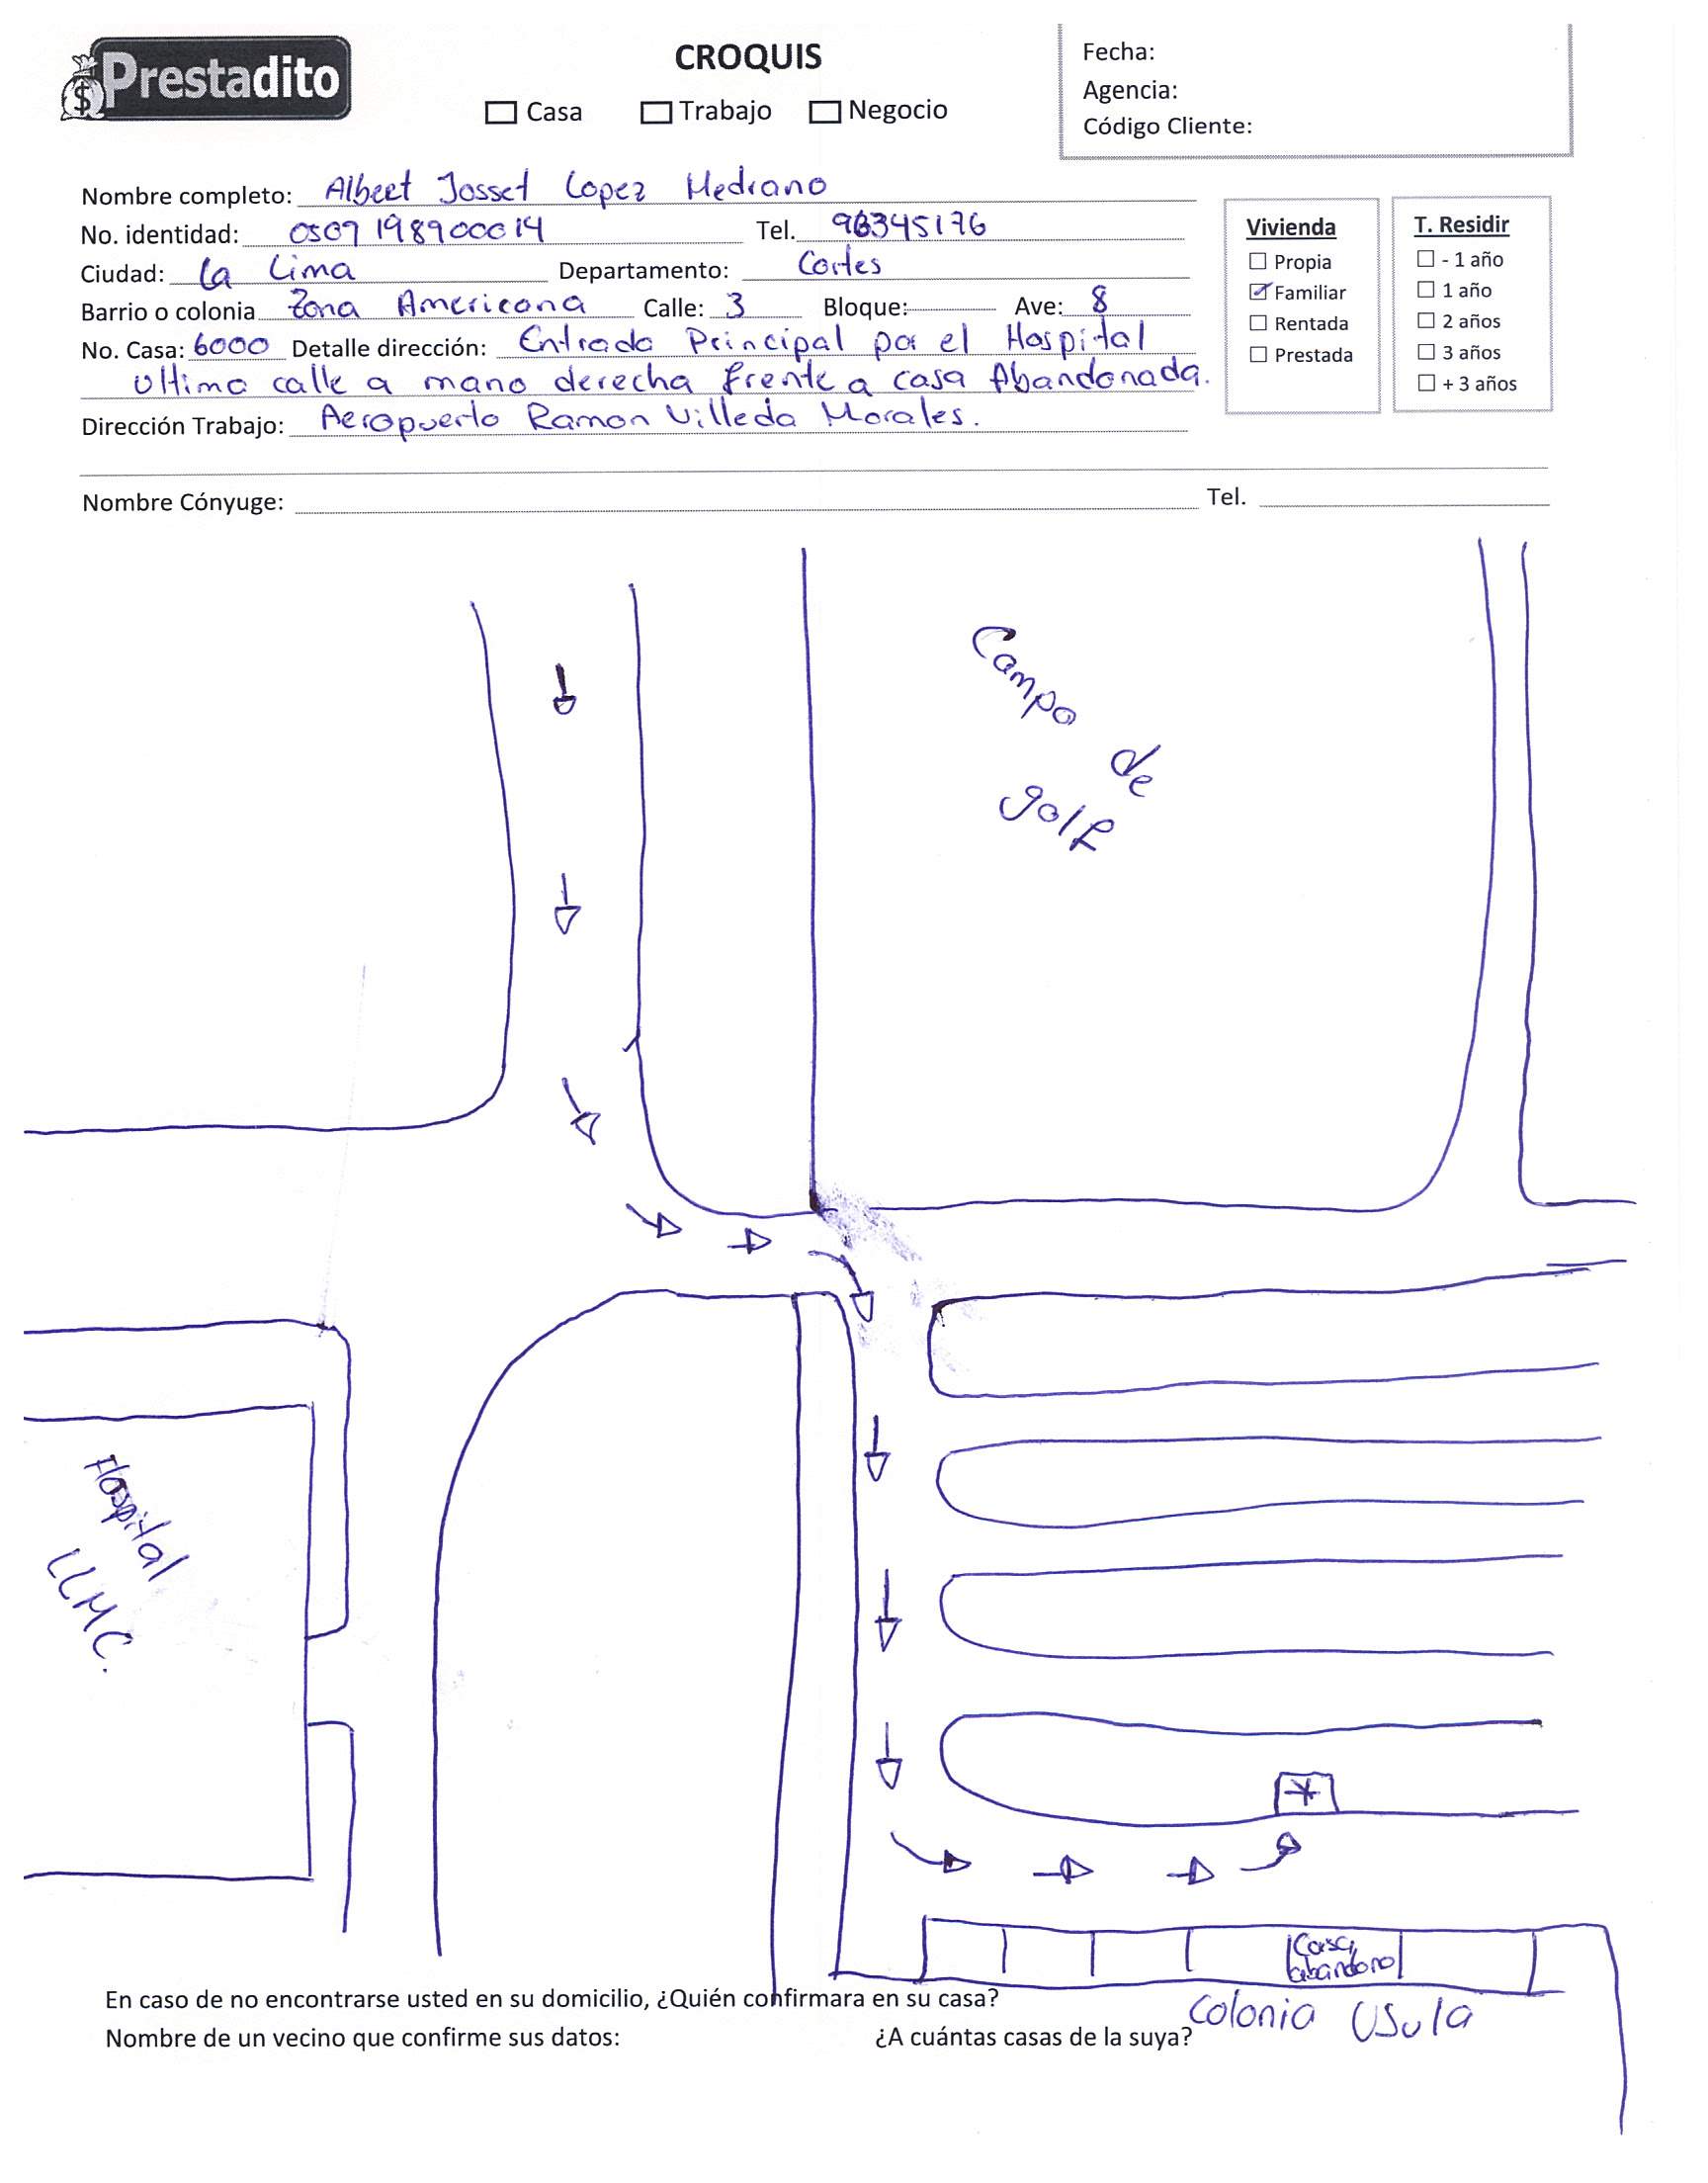 Prestadito
CROQUIS
Casa Trabajo Negocio
Fecha:
Agencia:
Código Cliente:
Nombre completo: Albert Josset Lopez Medrano
No. identidad: 0509198900014 Tel. 96345176
Ciudad: La Lima Departamento: Cortes
Barrio o colonia Zona Americana Calle: 3 Bloque: Ave: 8
No. Casa: 6000 Detalle dirección: Entrada Principal por el Hospital
ultima calle a mano derecha frente a casa Abandonada.
Dirección Trabajo: Aeropuerto Ramon Villeda Morales.
Nombre Cónyuge: Tel.
Vivienda
Propia
Familiar
Rentada
Prestada
T. Residir
- 1 año
1 año
2 años
3 años
+ 3 años
Campo de
golf
Hospital
LLMC.
Casa
abandono
En caso de no encontrarse usted en su domicilio, ¿Quién confirmara en su casa?
Colonia Usula
Nombre de un vecino que confirme sus datos: ¿A cuántas casas de la suya?